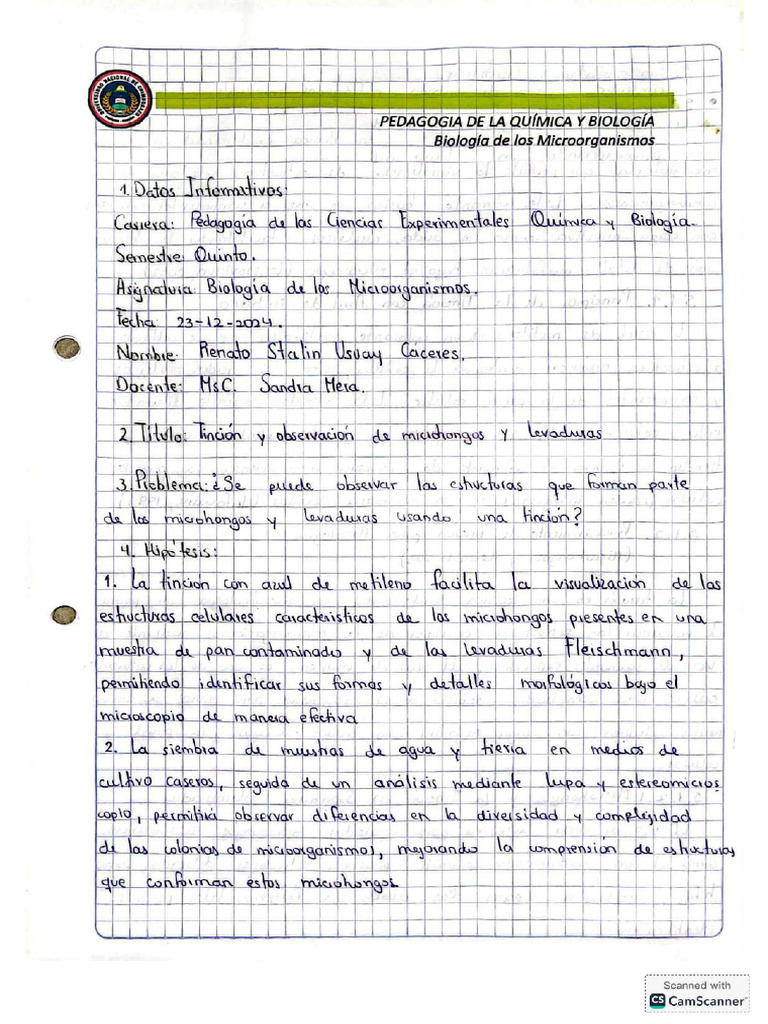 UNIVERSIDAD NACIONAL DE CHIMBORAZO
PEDAGOGIA DE LA QUÍMICA Y BIOLOGÍA
Biología de los Microorganismos
1. Datos Informativos:
Carrera: Pedagogía de las Ciencias Experimentales Química y Biología.
Semestre: Quinto.
Asignatura: Biología de los Microorganismos.
Fecha: 23-12-2024.
Nombre: Renato Stalin Usuay Cáceres.
Docente: MsC. Sandra Mera.
2. Título: Tinción y observación de microhongos y levaduras
3. Problema: ¿Se puede observar las estructuras que forman parte
de los microhongos y levaduras usando una tinción?
4. Hipótesis:
1. La tincion con azul de metileno facilita la visualización de las
estructuras celulares característicos de los microhongos presentes en una
muestra de pan contaminado y de las levaduras Fleischmann,
permitiendo identificar sus formas y detalles morfológicos bajo el
microscopio de manera efectiva
2. La siembra de muestras de agua y tierra en medios de
cultivo caseros, seguida de un análisis mediante lupa y estereomicros
copio, permitirá observar diferencias en la diversidad y complejidad
de las colonias de microorganismos, mejorando la comprensión de estructuras
que conforman estos microhongos.
Scanned with
CS CamScanner